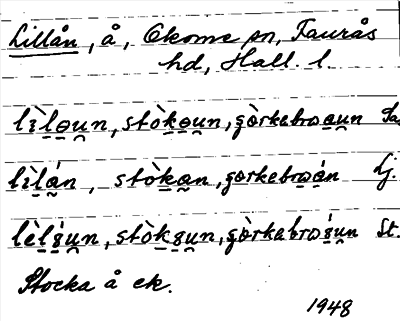 Lillån, å, Okome sn, Faurås
hd, Hall. l.
lìlɵu̯n, stòkɵu̯n, gòrkebroau̯n
lìlán, stòkan, gorkebroán Lj.
lèlɜ́u̯n, stòkɜu̯n, gòrkebroɜ́u̯n St.
Stocka å ek.
1948